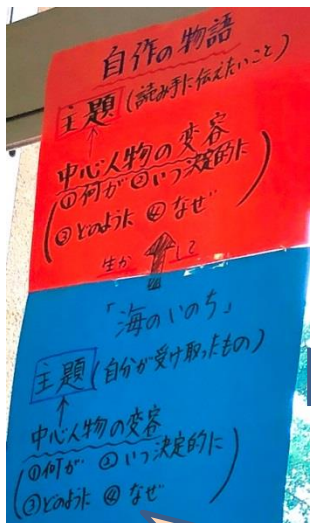 自作の物語
主題(読み手に伝えたいこと)
↑
中心人物の変容
(①何が ②いつ決定的に
③どのように ④なぜ)
生か↑して
「海のいのち」
主題(自分が受け取ったもの)
↑
中心人物の変容
(①何が ②いつ決定的に
③どのように ④なぜ)